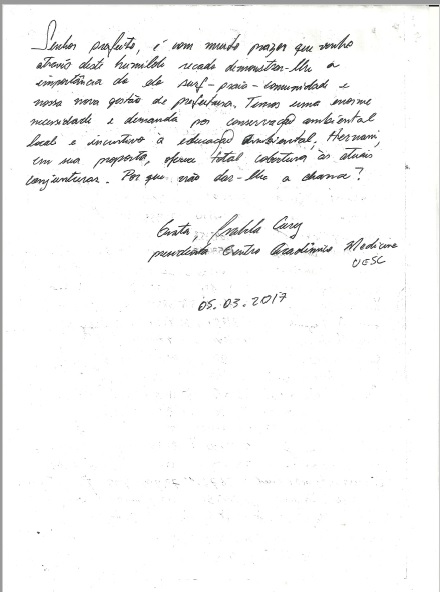 Senhor prefeito, é com muito prazer que venho
através deste humilde recado demonstrar-lhe a
importância do elo surf-praia-comunidade e
nossa nova gestão de prefeitura. Temos uma enorme
necessidade e demanda por conservação ambiental
local e incentivo à educação ambiental. Hernani,
em sua proposta, oferece total cobertura às atuais
conjunturas. Por que não dar-lhe a chance?
Grata,
presidente Centro Acadêmico Medicina
UESC
05.03.2017